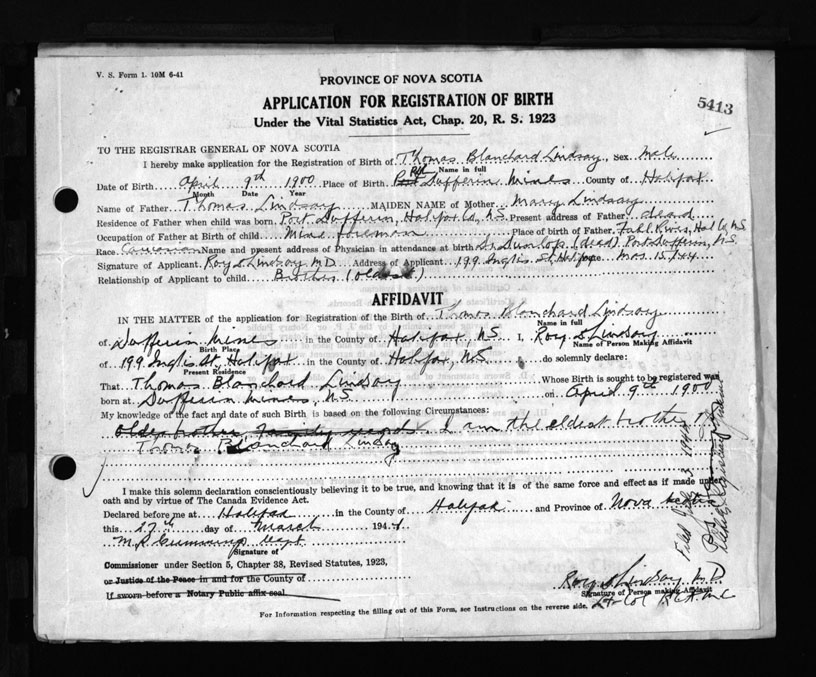 V. S. Form 1. 10M 6-41
PROVINCE OF NOVA SCOTIA
5413
APPLICATION FOR REGISTRATION OF BIRTH
Under the Vital Statistics Act, Chap. 20, R. S. 1923
TO THE REGISTRAR GENERAL OF NOVA SCOTIA
I hereby make application for the Registration of Birth of Thomas Blanchard Lindsay, Sex Male
Name in full
Date of Birth April 9th 1900 Place of Birth Port Dufferin Mines County of Halifax
Month Date Year
Name of Father Thomas Lindsay MAIDEN NAME of Mother Mary Lindsay
Residence of Father when child was born Port Dufferin, Halifax Co, N.S. Present address of Father dead
Occupation of Father at Birth of child Mine foreman Place of birth of Father Hal Co N.S
Race Name and present address of Physician in attendance at birth Dunlop (dead) Port Dufferin, N.S.
Signature of Applicant Roy S Lindsay MD Address of Applicant 199 Inglis St, Halifax Mar 15/44
Relationship of Applicant to child Brother (oldest)
AFFIDAVIT
IN THE MATTER of the application for Registration of the Birth of Thomas Blanchard Lindsay
Name in full
of Dufferin Mines in the County of Halifax, NS I, Roy S Lindsay
Birth Place Name of Person Making Affidavit
of 199 Inglis St, Halifax in the County of Halifax, NS do solemnly declare:
Present Residence
That Thomas Blanchard Lindsay Whose Birth is sought to be registered was
born at Dufferin Mines, NS on April 9th 1900
My knowledge of the fact and date of such Birth is based on the following Circumstances:
older brother family records. I am the eldest brother of
Thomas Blanchard Lindsay
I make this solemn declaration conscientiously believing it to be true, and knowing that it is of the same force and effect as if made under
oath and by virtue of The Canada Evidence Act.
Declared before me at Halifax in the County of Halifax and Province of Nova Scotia
this 27th day of March 1944
Capt
Signature of
Commissioner under Section 5, Chapter 38, Revised Statutes, 1923,
or Justice of the Peace in and for the County of
If sworn before a Notary Public affix seal
Roy S Lindsay MD
Signature of Person making Affidavit
Lt-Col RCAMC
For Information respecting the filling out of this Form, see Instructions on the reverse side.
Filed